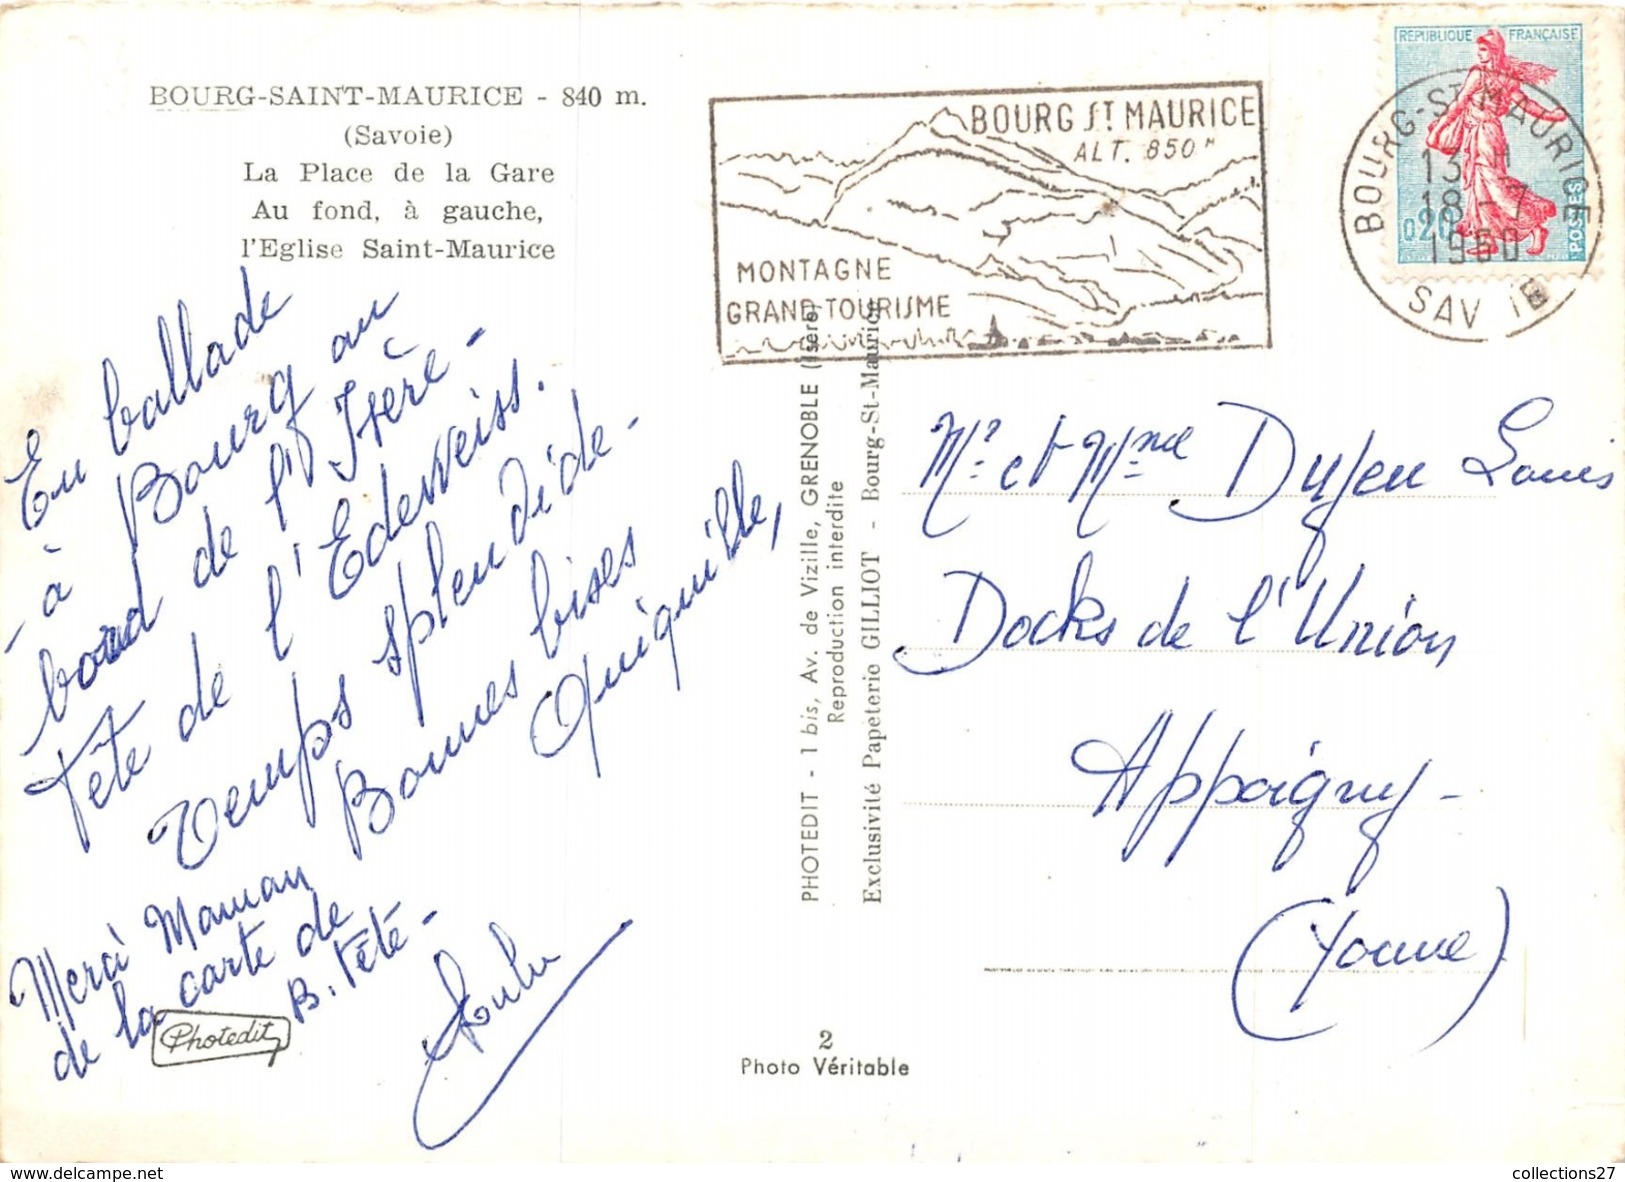 BOURG-SAINT-MAURICE - 840 m.
(Savoie)
La Place de la Gare
Au fond, à gauche,
l'Eglise Saint-Maurice
BOURG St MAURICE
ALT. 850 M
MONTAGNE
GRAND TOURISME
REPUBLIQUE FRANÇAISE
0,20
POSTES
BOURG-ST-MAURICE
13 H
18 - 7
1960
SAVOIE
En ballade
- à Bourg au
bord de l'Isère -
Fête de l'Edelweiss.
Temps splendide -
Bonnes bises
Quiquille,
Merci Maman
de la carte de
B. Tété -
Photedit
PHOTEDIT - 1 bis, Av. de Vizille, GRENOBLE (Isère)
Reproduction interdite
Exclusivité Papeterie GILLIOT - Bourg-St-Maurice
Mr et Mme Dujeu Louis
Docks de l'Union
Appoigny -
(Yonne)
2
Photo Véritable
collections27